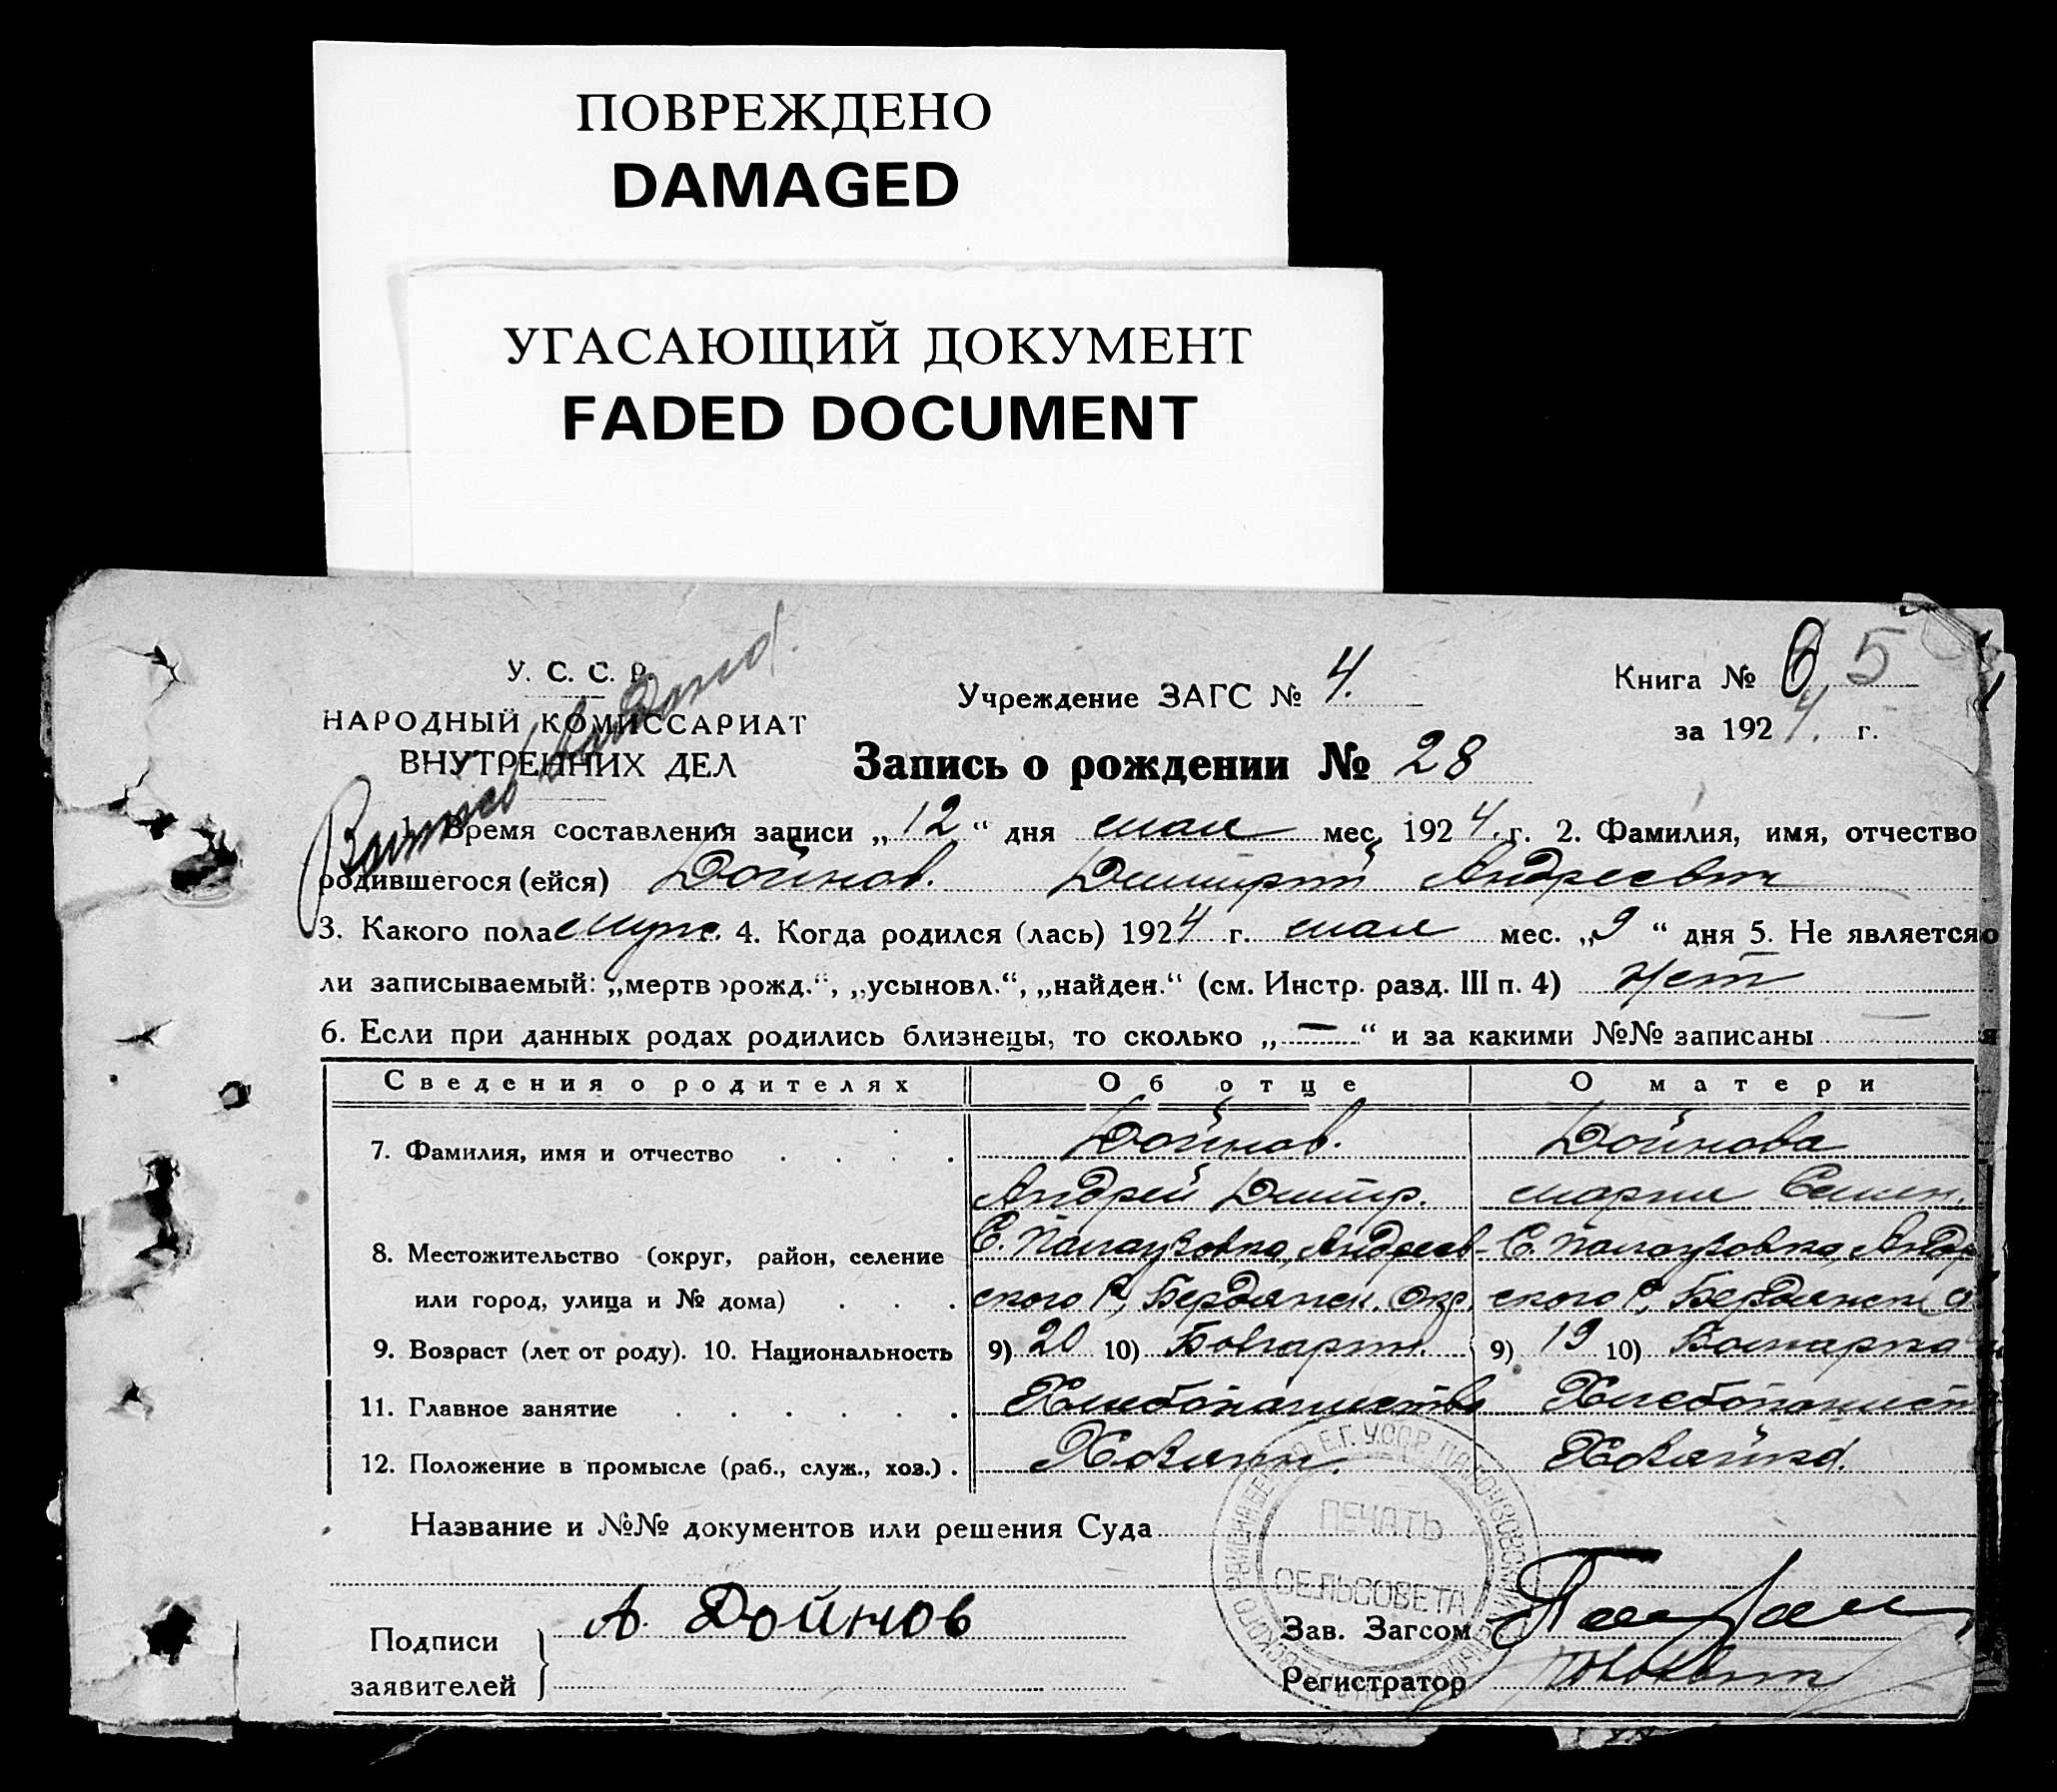 ПОВРЕЖДЕНО
DAMAGED
УГАСАЮЩИЙ ДОКУМЕНТ
FADED DOCUMENT
У. С. С. Р.
НАРОДНЫЙ КОМИССАРИАТ
ВНУТРЕННИХ ДЕЛ
Учреждение ЗАГС № 4.
Книга № 65
за 1924. г.
Запись о рождении № 28
1. Время составления записи „12“ дня мая мес. 1924. г. 2. Фамилия, имя, отчество
родившегося (ейся) Дойнов. Дмитрий Андреевич
3. Какого пола муж. 4. Когда родился (лась) 1924 г. мая мес. „9“ дня 5. Не является
ли записываемый: „мертворожд.“, „усыновл.“, „найден.“ (см. Инстр. разд. III п. 4) Нет
6. Если при данных родах родились близнецы, то сколько „—“ и за какими №№ записаны
Сведения о родителях Об отце О матери
7. Фамилия, имя и отчество Дойнов. Дойнова
Андрей Дмитр. Мария Семен.
8. Местожительство (округ, район, селение С. Палаузовка, Андреев- С. Палаузовка, Андр
или город, улица и № дома) ского р, Бердянск. Окр. ского р, Бердянск О
9. Возраст (лет от роду). 10. Национальность 9) 20 10) Болгарин. 9) 19 10) Болгарка
11. Главное занятие Хлебопашество Хлебопашест
12. Положение в промысле (раб., служ., хоз.) Хозяин. Хозяйка.
Название и №№ документов или решения Суда
ПЕЧАТЬ
СЕЛЬСОВЕТА
Подписи
заявителей
А. Дойнов
Зав. Загсом
Регистратор